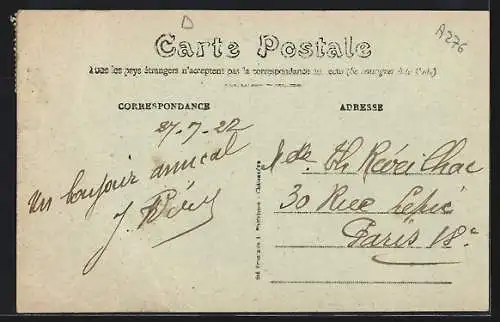 D
A276
Carte Postale
Tous les pays étrangers n'acceptent pas la correspondance au recto (Se renseigner à la Poste)
CORRESPONDANCE
ADRESSE
27-7-22
Un bonjour amical
J.
Th Réveilhac
30 Rue Lepic
Paris 18e